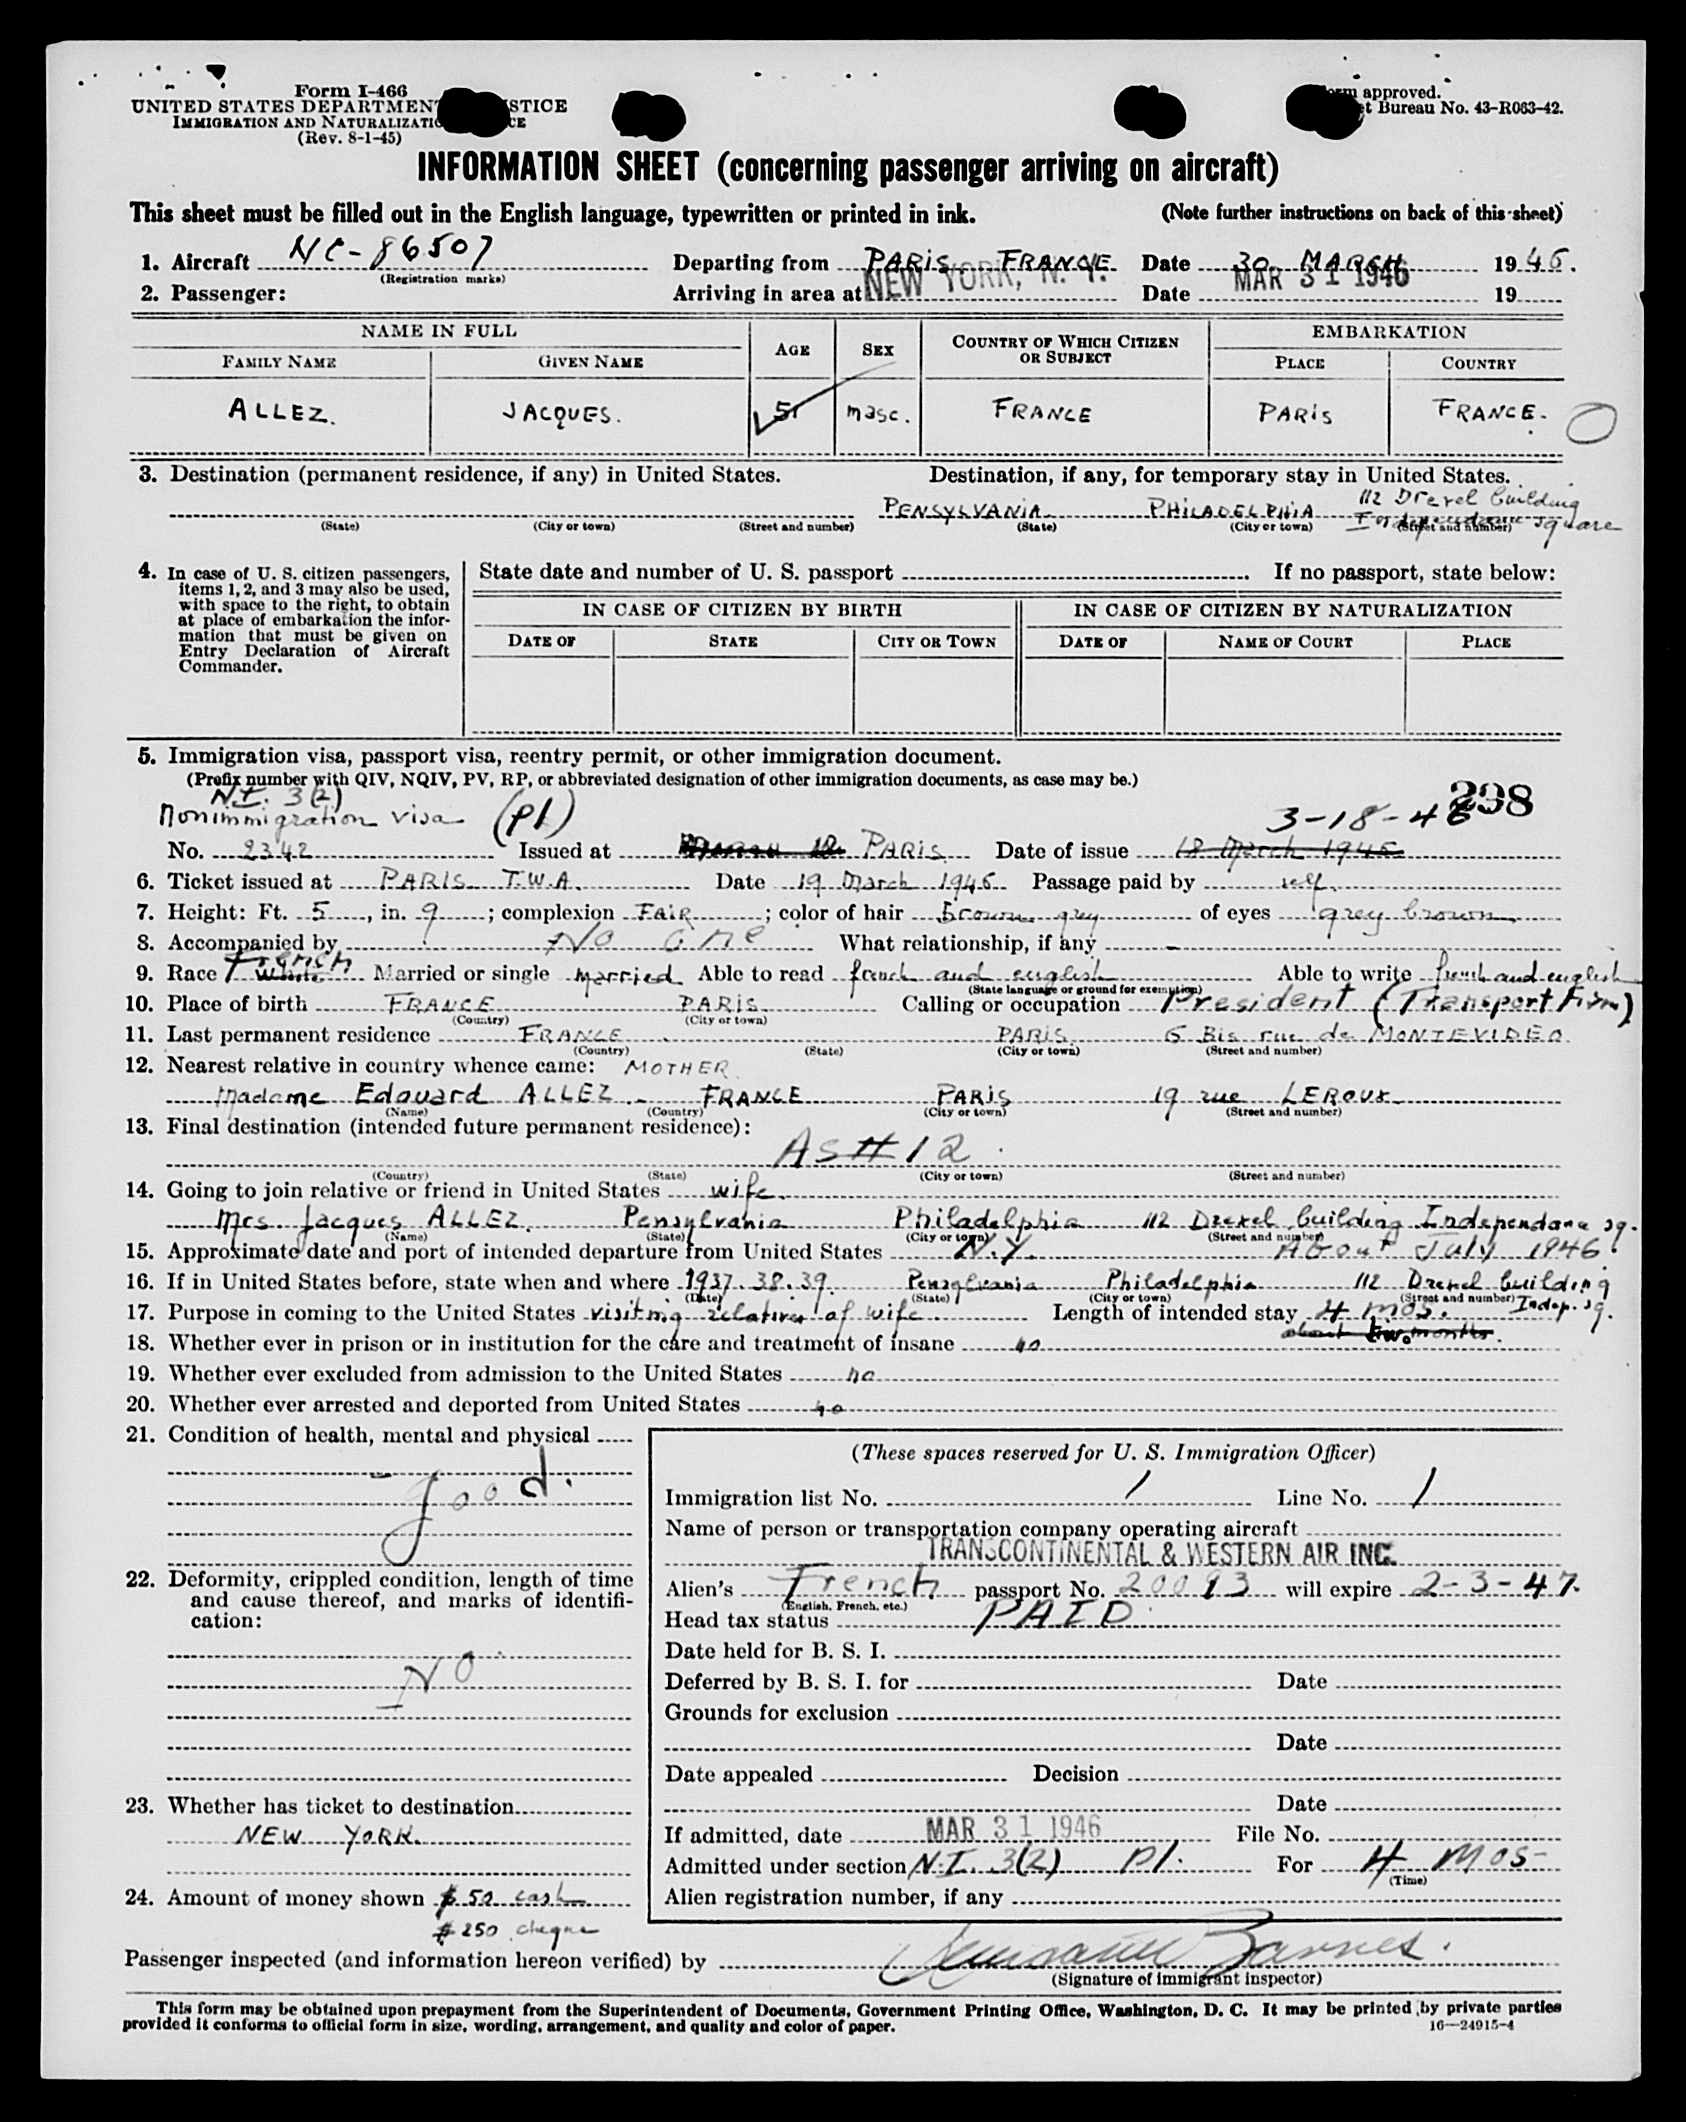 Form I-466
UNITED STATES DEPARTMENT STICE
IMMIGRATION AND NATURALIZATIO CE
(Rev. 8-1-45)
approved.
t Bureau No. 43-R063-42.
INFORMATION SHEET (concerning passenger arriving on aircraft)
This sheet must be filled out in the English language, typewritten or printed in ink. (Note further instructions on back of this sheet)
1. Aircraft NC-86507 Departing from PARIS FRANCE Date 30 MARCH 1946.
(Registration marks)
2. Passenger: Arriving in area at NEW YORK, N. Y. Date MAR 31 1946 19
NAME IN FULL AGE SEX COUNTRY OF WHICH CITIZEN OR SUBJECT EMBARKATION
FAMILY NAME GIVEN NAME PLACE COUNTRY
ALLEZ. JACQUES. 51 masc. FRANCE PARIS FRANCE. O
3. Destination (permanent residence, if any) in United States. Destination, if any, for temporary stay in United States.
PENSYLVANIA PHILADELPHIA 112 Drexel building
Independance square
(State) (City or town) (Street and number) (State) (City or town) (Street and number)
4. In case of U. S. citizen passengers, items 1, 2, and 3 may also be used, with space to the right, to obtain at place of embarkation the information that must be given on Entry Declaration of Aircraft Commander.
State date and number of U. S. passport . If no passport, state below:
IN CASE OF CITIZEN BY BIRTH IN CASE OF CITIZEN BY NATURALIZATION
DATE OF STATE CITY OR TOWN DATE OF NAME OF COURT PLACE
5. Immigration visa, passport visa, reentry permit, or other immigration document.
(Prefix number with QIV, NQIV, PV, RP, or abbreviated designation of other immigration documents, as case may be.)
N.I. 3(2) 298
Nonimmigration visa (P1) 3-18-46
No. 2342 Issued at PARIS Date of issue 18 March 1946
6. Ticket issued at PARIS T.W.A. Date 19 March 1946 Passage paid by self.
7. Height: Ft. 5, in. 9; complexion FAIR; color of hair Brown grey of eyes grey brown
8. Accompanied by No one What relationship, if any -
9. Race French White Married or single married Able to read french and english Able to write french and english
(State language or ground for exemption)
10. Place of birth FRANCE PARIS Calling or occupation President (Transport Firm)
(Country) (City or town)
11. Last permanent residence FRANCE PARIS 6 Bis rue de MONTEVIDEO
(Country) (State) (City or town) (Street and number)
12. Nearest relative in country whence came: MOTHER
Madame Edouard ALLEZ - FRANCE PARIS 19 rue LEROUX
(Name) (Country) (City or town) (Street and number)
13. Final destination (intended future permanent residence):
AS # 12
(Country) (State) (City or town) (Street and number)
14. Going to join relative or friend in United States wife.
Mrs Jacques ALLEZ. Pensylvania Philadelphia 112 Drexel building Independance sq.
(Name) (State) (City or town) (Street and number)
15. Approximate date and port of intended departure from United States N.Y. About July 1946.
16. If in United States before, state when and where 1937. 38. 39. Pensylvania Philadelphia 112 Drexel building
(Date) (State) (City or town) (Street and number) Indep. sq.
17. Purpose in coming to the United States visiting relatives of wife. Length of intended stay 4 mos.
about two months.
18. Whether ever in prison or in institution for the care and treatment of insane no
19. Whether ever excluded from admission to the United States no
20. Whether ever arrested and deported from United States no
21. Condition of health, mental and physical
good.
22. Deformity, crippled condition, length of time and cause thereof, and marks of identification:
NO
23. Whether has ticket to destination
NEW YORK.
24. Amount of money shown $ 50 cash
$ 250 cheque
(These spaces reserved for U. S. Immigration Officer)
Immigration list No. 1 Line No. 1
Name of person or transportation company operating aircraft
TRANSCONTINENTAL & WESTERN AIR INC.
Alien's French passport No. 20093 will expire 2-3-47.
(English, French, etc.)
Head tax status PAID
Date held for B. S. I.
Deferred by B. S. I. for Date
Grounds for exclusion
Date
Date appealed Decision
Date
If admitted, date MAR 31 1946 File No.
Admitted under section N.I. 3(2) P1. For 4 mos
(Time)
Alien registration number, if any
Passenger inspected (and information hereon verified) by Barnes.
(Signature of immigrant inspector)
This form may be obtained upon prepayment from the Superintendent of Documents, Government Printing Office, Washington, D. C. It may be printed by private parties
provided it conforms to official form in size, wording, arrangement, and quality and color of paper. 16—24915-4